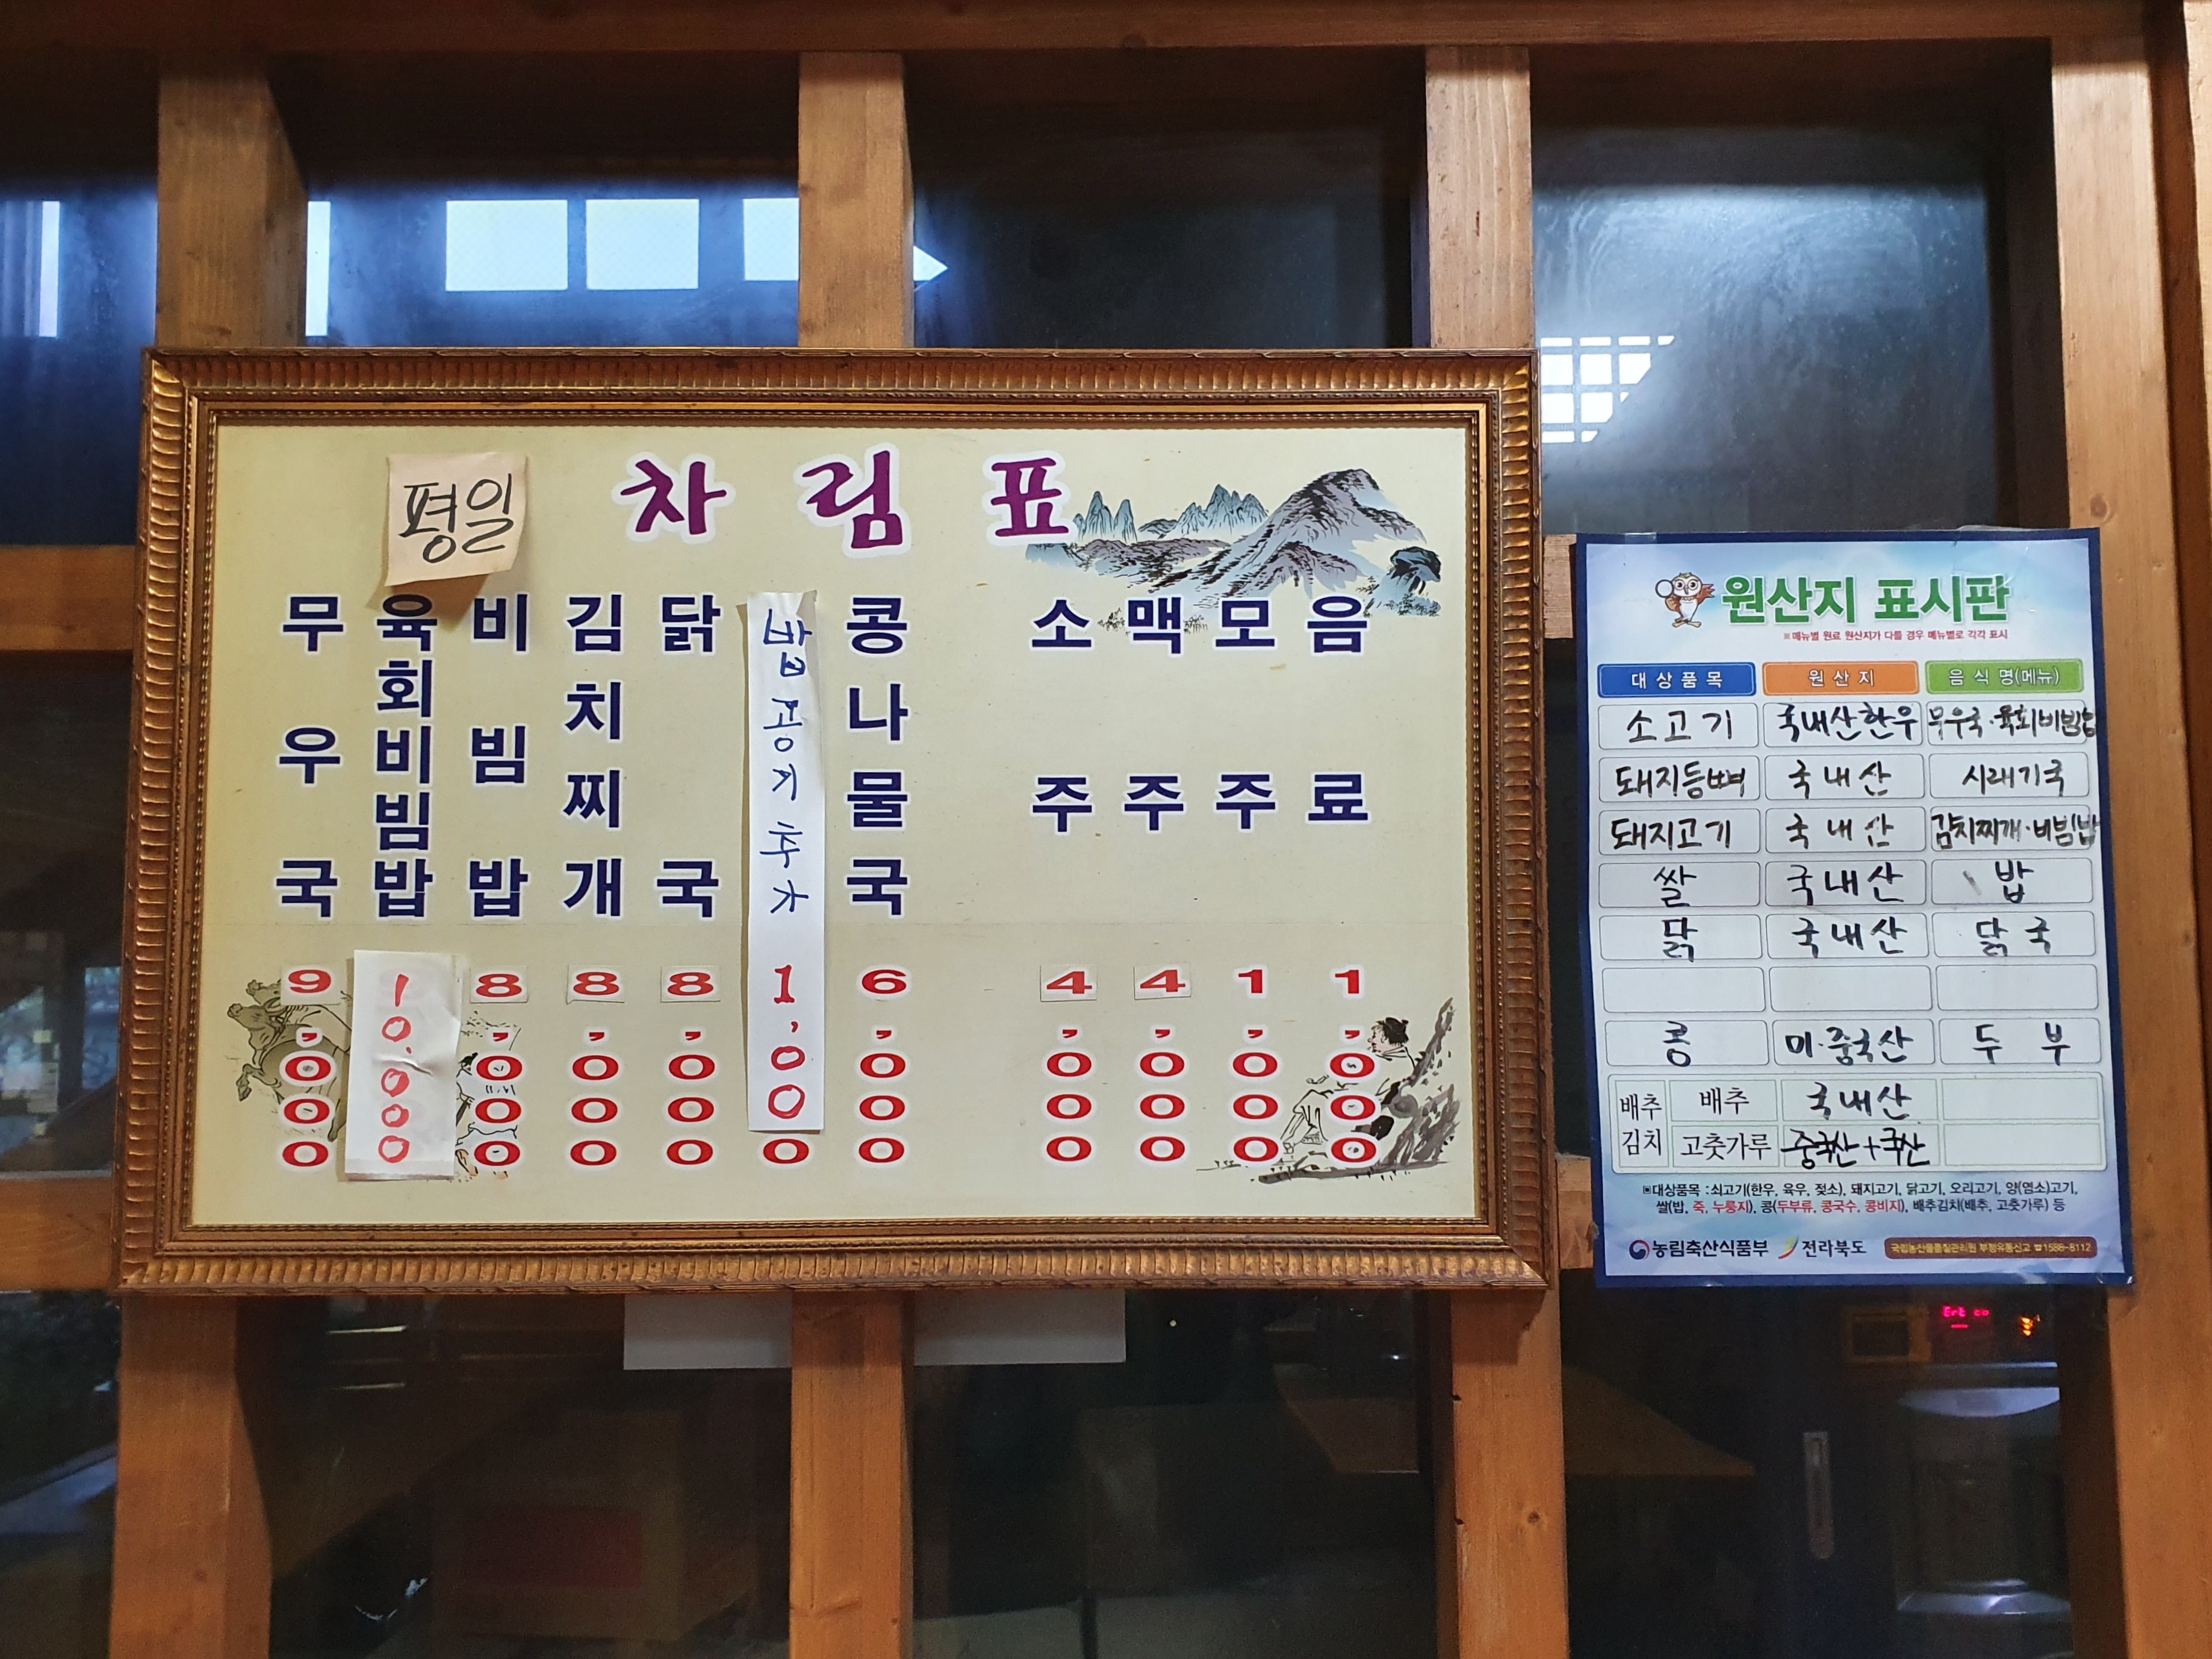 차림표
평일
무우국 9,000
육회비빔밥 10.000
비빔밥 8,000
김치찌개 8,000
닭국 8,000
밥공기추가 1,000
콩나물국 6,000
소주 4,000
맥주 4,000
모주 1,000
음료 1,000
원산지 표시판
※메뉴별 원료 원산지가 다를 경우 메뉴별로 각각 표시
대상품목 원산지 음식명(메뉴)
소고기 국내산한우 무우국·육회비빔밥
돼지등뼈 국내산 시래기국
돼지고기 국내산 김치찌개·비빔밥
쌀 국내산 밥
닭 국내산 닭국
콩 미·중국산 두부
배추김치 배추 국내산
고춧가루 중국산+국산
▣대상품목 : 쇠고기(한우, 육우, 젖소), 돼지고기, 닭고기, 오리고기, 양(염소)고기,
쌀(밥, 죽, 누룽지), 콩(두부류, 콩국수, 콩비지), 배추김치(배추, 고춧가루) 등
농림축산식품부 전라북도 국립농산물품질관리원 부정유통신고 ☎1588-8112